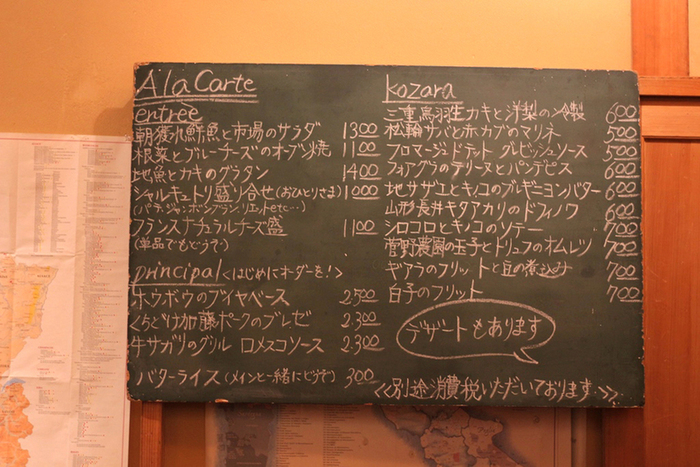 A la Carte
entrée
朝獲れ鮮魚と市場のサラダ 1300
根菜とブルーチーズのオーブン焼 1100
地魚とカキのグラタン 1400
シャルキュトリ盛り合せ(おひとりさま) 1000
(パテ、ジャンボンブラン、リエットetc…)
フランスナチュラルチーズ盛 1100
(単品でもどうぞ)
principal <はじめにオーダーを!>
ホウボウのブイヤベース 2500
くちどけ加藤ポークのブレゼ 2300
牛サガリのグリル ロメスコソース 2300
バターライス(メインと一緒にどうぞ) 300
kozara
三重鳥羽生カキと洋梨の冷製 600
松輪サバと赤カブのマリネ 500
フロマージュドテット グビッシュソース 500
フォアグラのテリーヌとパンデピス 600
地サザエとキノコのブルギニヨンバター 600
山形長井キタアカリのドフィノワ 600
シロコロとキノコのソテー 700
菅野農園の玉子とトリュフのオムレツ 700
ギアラのフリットと豆の煮込み 700
白子のフリット 700
デザートもあります
<<別途消費税いただいております.>>